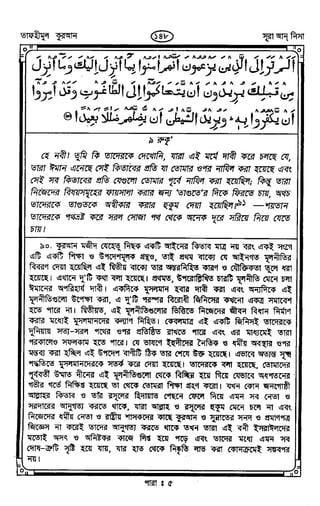 তাফহীমুল কুরআন
১৪৮
সূরা আন্ নিসা
أَلَمْ تَرَ إِلَى الَّذِينَ يَزْعُمُونَ أَنَّهُمْ آمَنُوا بِمَا أُنزِلَ إِلَيْكَ وَمَا أُنزِلَ
مِن قَبْلِكَ يُرِيدُونَ أَن يَتَحَاكَمُوا إِلَى الطَّاغُوتِ وَقَدْ أُمِرُوا
أَن يَكْفُرُوا بِهِ وَيُرِيدُ الشَّيْطَانُ أَن يُضِلَّهُمْ ضَلَالًا بَعِيدًا
৯ রুকূ'
হে নবী! তুমি কি তাদেরকে দেখোনি, যারা এই মর্মে দাবী করে চলছে যে,
তারা ঈমান এনেছে সেই কিতাবের প্রতি যা তোমার ওপর নাযিল করা হয়েছে এবং
সেই সব কিতাবের প্রতি যেগুলো তোমার পূর্বে নাযিল করা হয়েছিল; কিন্তু তারা
নিজেদের বিষয়সমূহের ফায়সালা করার জন্য 'তাগুতে'র দিকে ফিরতে চায়, অথচ
তাদেরকে তাগুতকে অস্বীকার করার হুকুম দেয়া হয়েছিল?৯১ —শয়তান
তাদেরকে পথভ্রষ্ট করে সরল সোজা পথ থেকে অনেক দূরে সরিয়ে নিয়ে যেতে
চায়।
৯০. কুরআন মজীদ যেহেতু নিছক একটি আইনের কিতাব মাত্র নয় বরং একই সংগে
এটি একটি শিক্ষা ও উপদেশমূলক গ্রন্থও, তাই প্রথম বাক্যে যে আইনগত মূলনীতির
বিবরণ দেয়া হয়েছিল এই দ্বিতীয় বাক্যে তার অন্তরনিহিত কারণ ও যৌক্তিকতা তুলে ধরা
হয়েছে। এখানে দু'টি কথা বলা হয়েছে। প্রথমত, উপরোল্লিখিত চারটি মূলনীতি মেনে চলা
ঈমানের অপরিহার্য দাবী। একদিকে মুসলমান হবার দাবী করা এবং অন্যদিকে এই
মূলনীতিগুলো উপেক্ষা করা, এ দু'টি পরস্পর বিরোধী জিনিসের কখনো একত্র সমাবেশ
হতে পারে না। দ্বিতীয়ত, এই মূলনীতিগুলোর ভিত্তিতে নিজেদের জীবন বিধান নির্মাণ
করার মধ্যেই মুসলমানদের কল্যাণ নিহিত। কেবলমাত্র এই একটি জিনিসই তাদেরকে
দুনিয়ায় সত্য-সরল পথের ওপর প্রতিষ্ঠিত রাখতে পারে এবং এর মাধ্যমেই তারা
পরকালেও সফলকাম হতে পারে। যে ভাষণে ইহুদীদের নৈতিক ও ধর্মীয় অবস্থার ওপর
মন্তব্য করা হচ্ছিল এই উপদেশ বাণীটি ঠিক তার শেষে উক্ত হয়েছে। এভাবে অত্যন্ত সূক্ষ্ম
পদ্ধতিতে মুসলমানদেরকে সতর্ক করে দেয়া হয়েছে। তাদেরকে বলা হয়েছে, তোমাদের
পূর্ববর্তী উম্মাত দীনের এই মূলনীতিগুলো থেকে বিচ্ছিন্ন হয়ে গিয়ে যেভাবে অধপতনের
গভীর গর্তে নিক্ষিপ্ত হয়েছে তা থেকে তোমরা শিক্ষা গ্রহণ করো। যখন কোন জনগোষ্ঠী
আল্লাহর কিতাব ও তাঁর রসূলের হিদায়াত পেছনে ফেলে দিয়ে এমন সব নেতা ও
সরদারের আনুগত্য করতে থাকে, যারা আল্লাহ ও রসূলের হুকুম মেনে চলে না এবং
নিজেদের ধর্মীয় নেতা ও রাষ্ট্রীয় শাসকদের কাছে কুরআন ও সুন্নাতের সনদ ও প্রমাণপত্র
জিজ্ঞেস না করেই তাদের আনুগত্য করতে থাকে তখন তারা এই বনী ইসরাঈলদের
মতোই অসৎ ও অনিষ্টকর কাজে লিপ্ত হয়ে পড়ে এবং তাদের মধ্যে এমন সব
দোষ-ত্রুটি সৃষ্টি হয়ে যায়, যার হাত থেকে নিষ্কৃতি লাভ করা কোনক্রমেই সম্ভবপর
নয়।
পারা : ৫